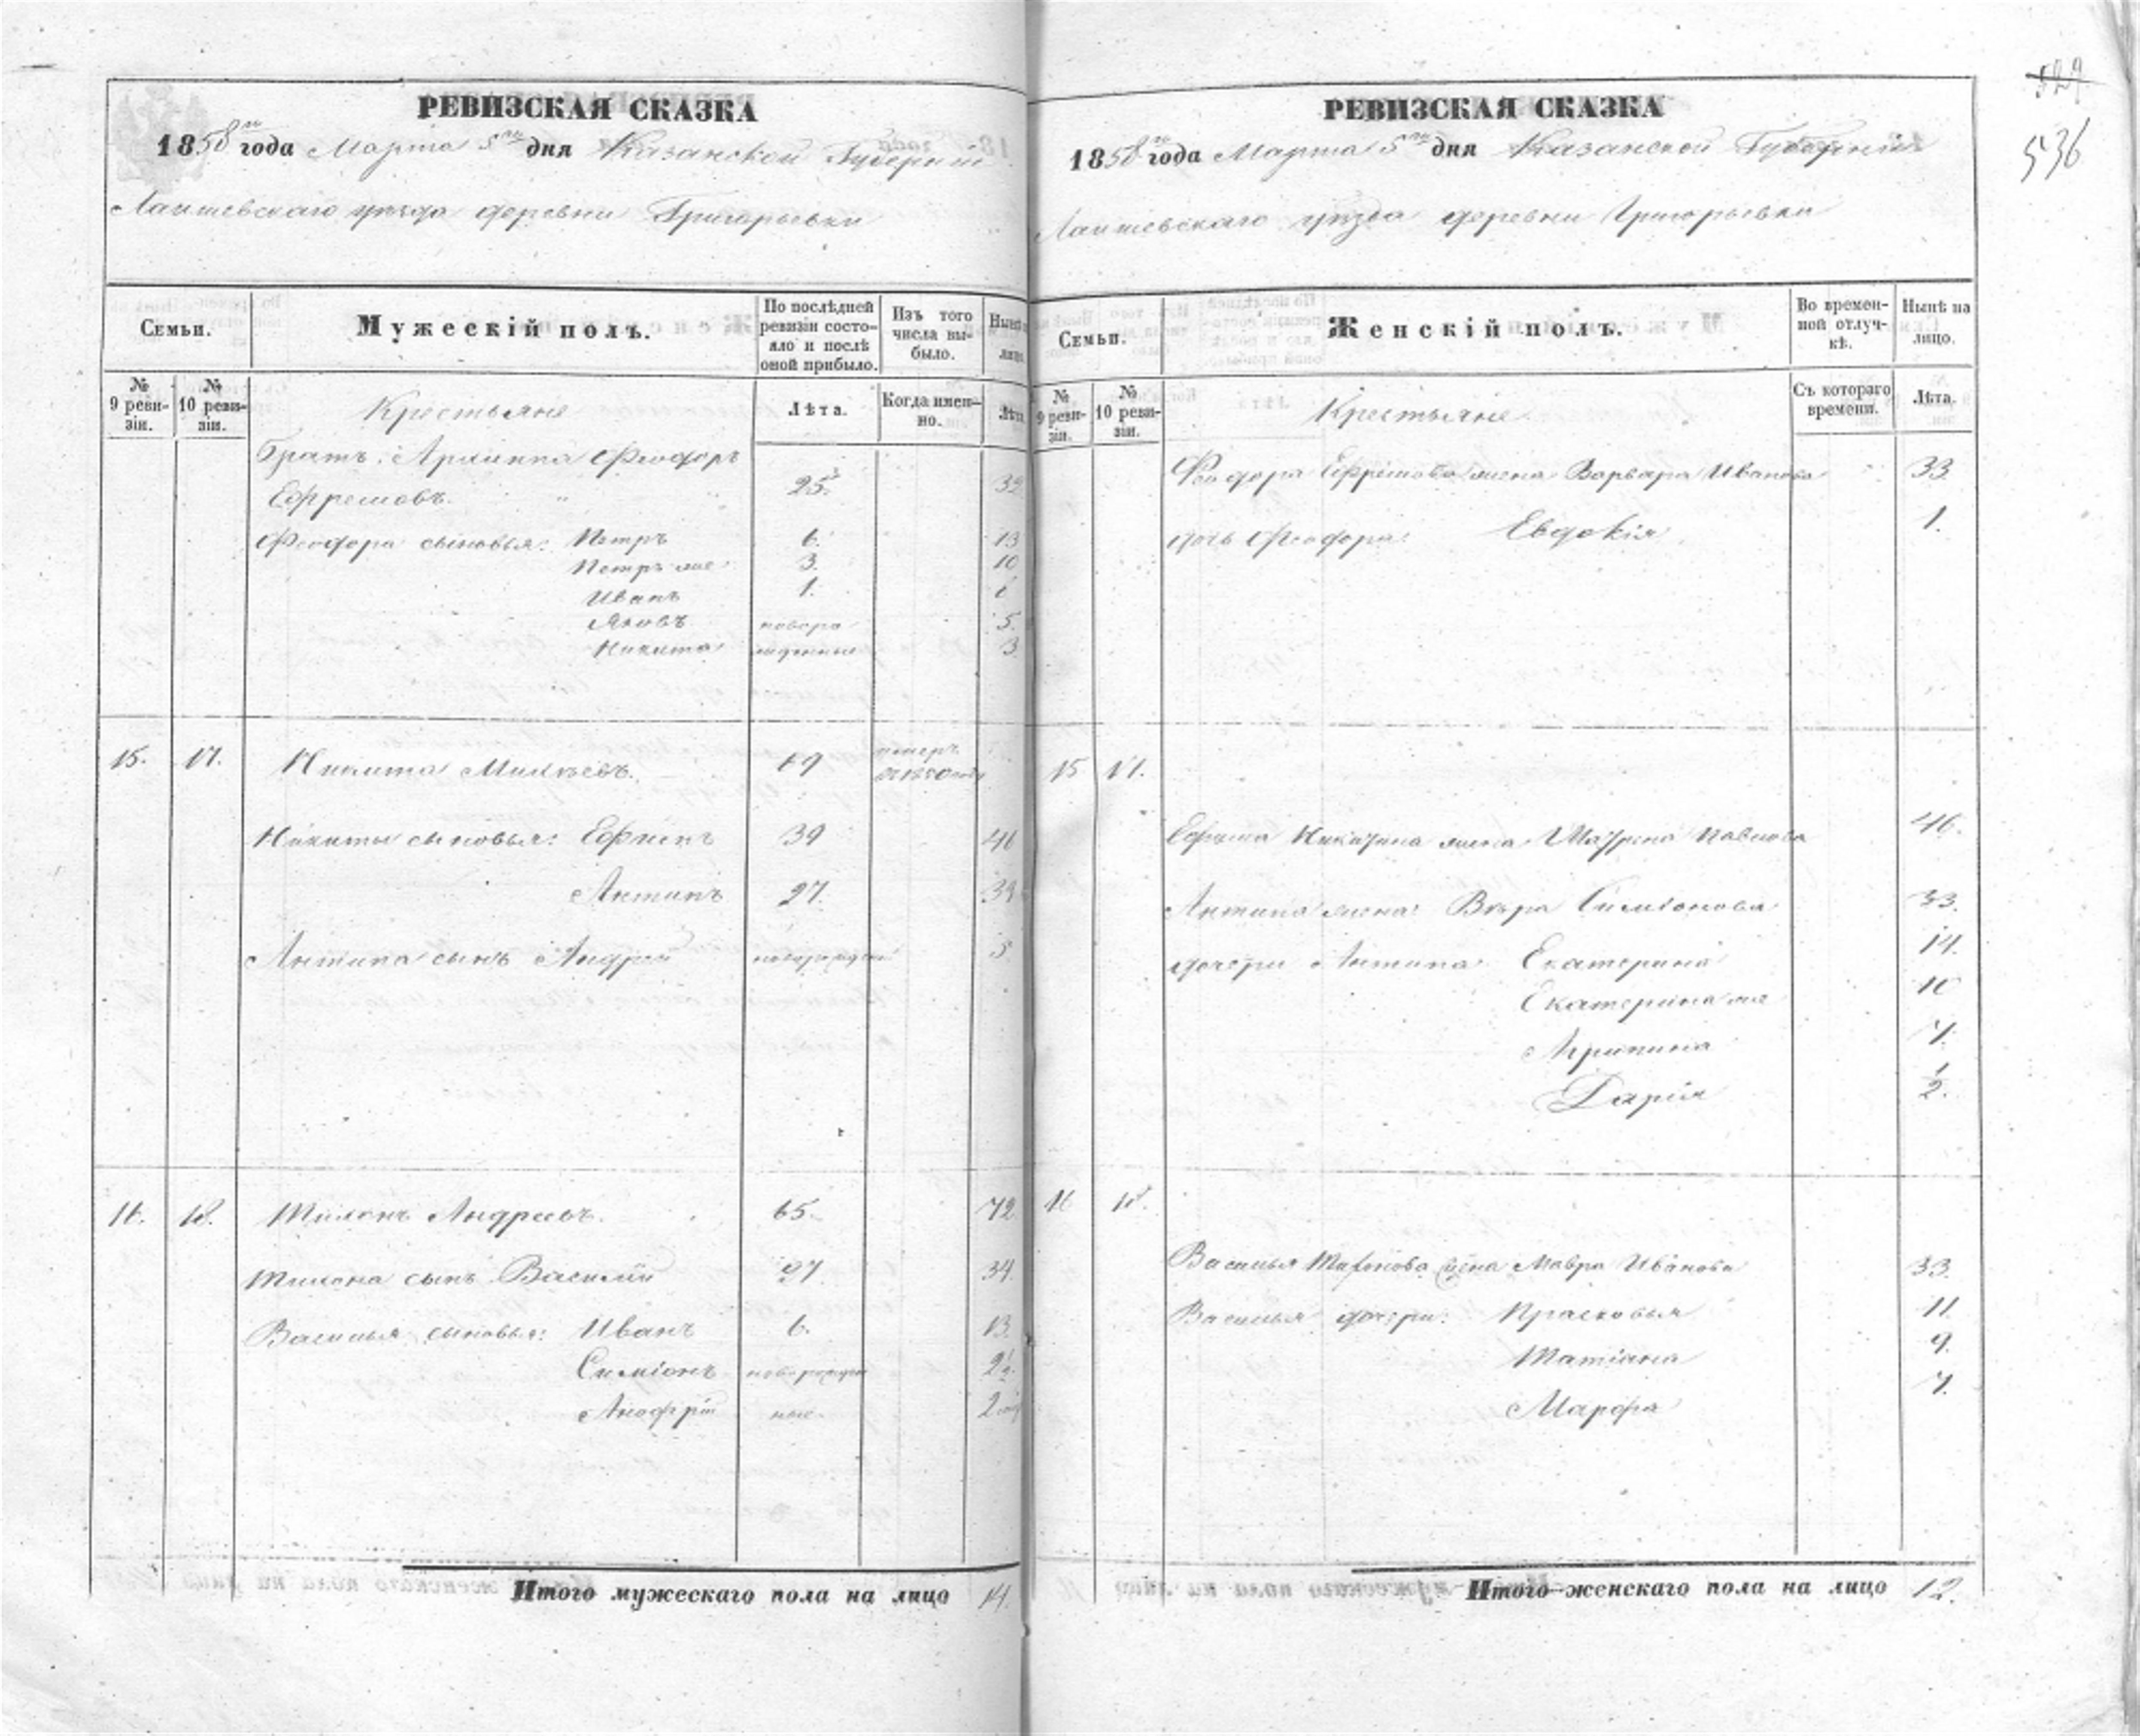 РЕВИЗСКАЯ СКАЗКА
1858 года Марта 5 дня Казанской Губерніи
Лаишевскаго уѣзда деревни Григорьевки
Семьи.
Мужескій полъ.
По послѣдней ревизіи состояло и послѣ оной прибыло.
Изъ того числа выбыло.
Нынѣ
лицо
№ 9 ревизіи.
№ 10 ревизіи.
Крестьяне
Лѣта.
Когда именно.
Лѣта
Братъ Феодоръ
Ефремовъ. 25
Феодора сыновья: Петръ 6. 13
Петръ же 3. 10
Иванъ 1.
Яковъ новоро 5.
Никита жденные 3
15. 17. Никита 69 умеръ
Никиты сыновья: Ефимъ 39 46
Антипъ 27.
Антипа сынъ Андрей новорожден 5
16. 18. Тихонъ Андреевъ. 65. 72
Тихона сынъ Василій 27 34.
Василья сыновья: Иванъ 6. 13.
Симіонъ новорожден
ные
Итого мужескаго пола на лицо 14.
РЕВИЗСКАЯ СКАЗКА
1858 года Марта 5 дня Казанской Губерніи
Лаишевскаго уѣзда деревни Григорьевки
529
536
Семьи.
Женскій полъ.
Во временной отлучкѣ.
Нынѣ на лицо.
№ 9 ревизіи.
№ 10 ревизіи.
Крестьяне
Съ котораго времени.
Лѣта.
Феодора Ефремова жена Варвара Иванова 33
дочь Феодора: Евдокія 1.
15 17.
Ефима Никитина жена Мавра Павлова 46.
Антипа жена Вѣра Симіонова 33.
дочери Антипа: Екатерина 14.
Екатерина же 10
Агрипина 7.
Дарія 1/2.
16 18.
Василья Тихонова жена Мавра Иванова 33.
Василья дочери: Прасковья 11.
Татіана 9.
Марфа 7.
Итого женскаго пола на лицо 12.